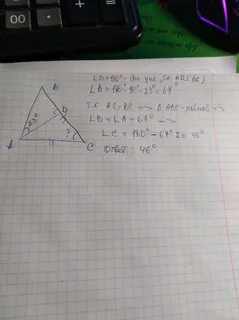 B
D
23°
?
A
C
∠D=90°-(по усл., т.к. AD⊥BC)
∠B=180°-90°-23°=67°
т.к AC=BC => Δ ABC-равноб =>
∠B=∠A=67° =>
∠C=180°-67°·2=46°
Ответ: 46°